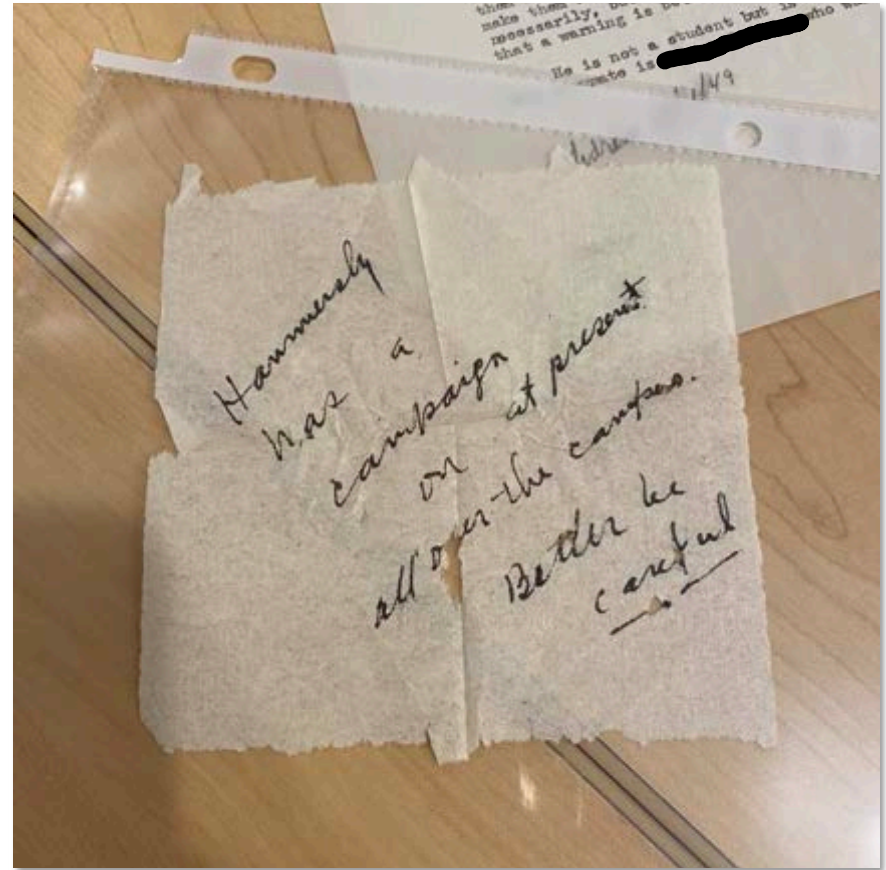 make them
necessarily, b
that a warning is
He is not a student but is who w
mate is
/49
Hammersly
has a
campaign
on at present
all over the campus.
Better be
careful